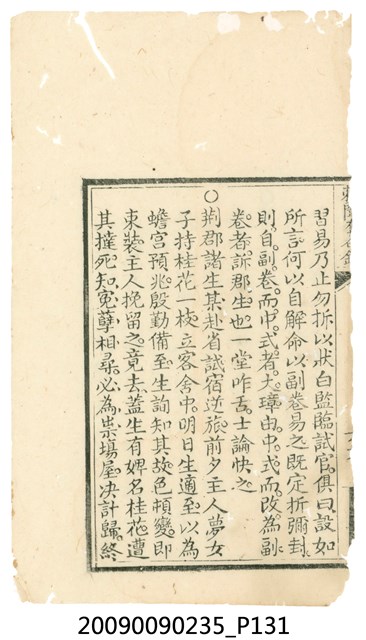 習易乃止勿拆以狀白監臨試官俱曰設如
所言何以自解命以副卷易之既定拆彌封
則自副卷而中式者大璋由中式而改為副
卷者訴郡生也一堂咋舌士論快之
○
荆郡諸生某赴省試宿逆旅前夕主人夢女
子持桂花一枝立客舍中明日生適至以為
蟾宮預兆殷勤備至生詢知其故色頓變即
束裝主人挽留之竟去蓋生有婢名桂花遭
其撻死知冤孽相尋必為祟場屋決計歸終
20090090235_P131